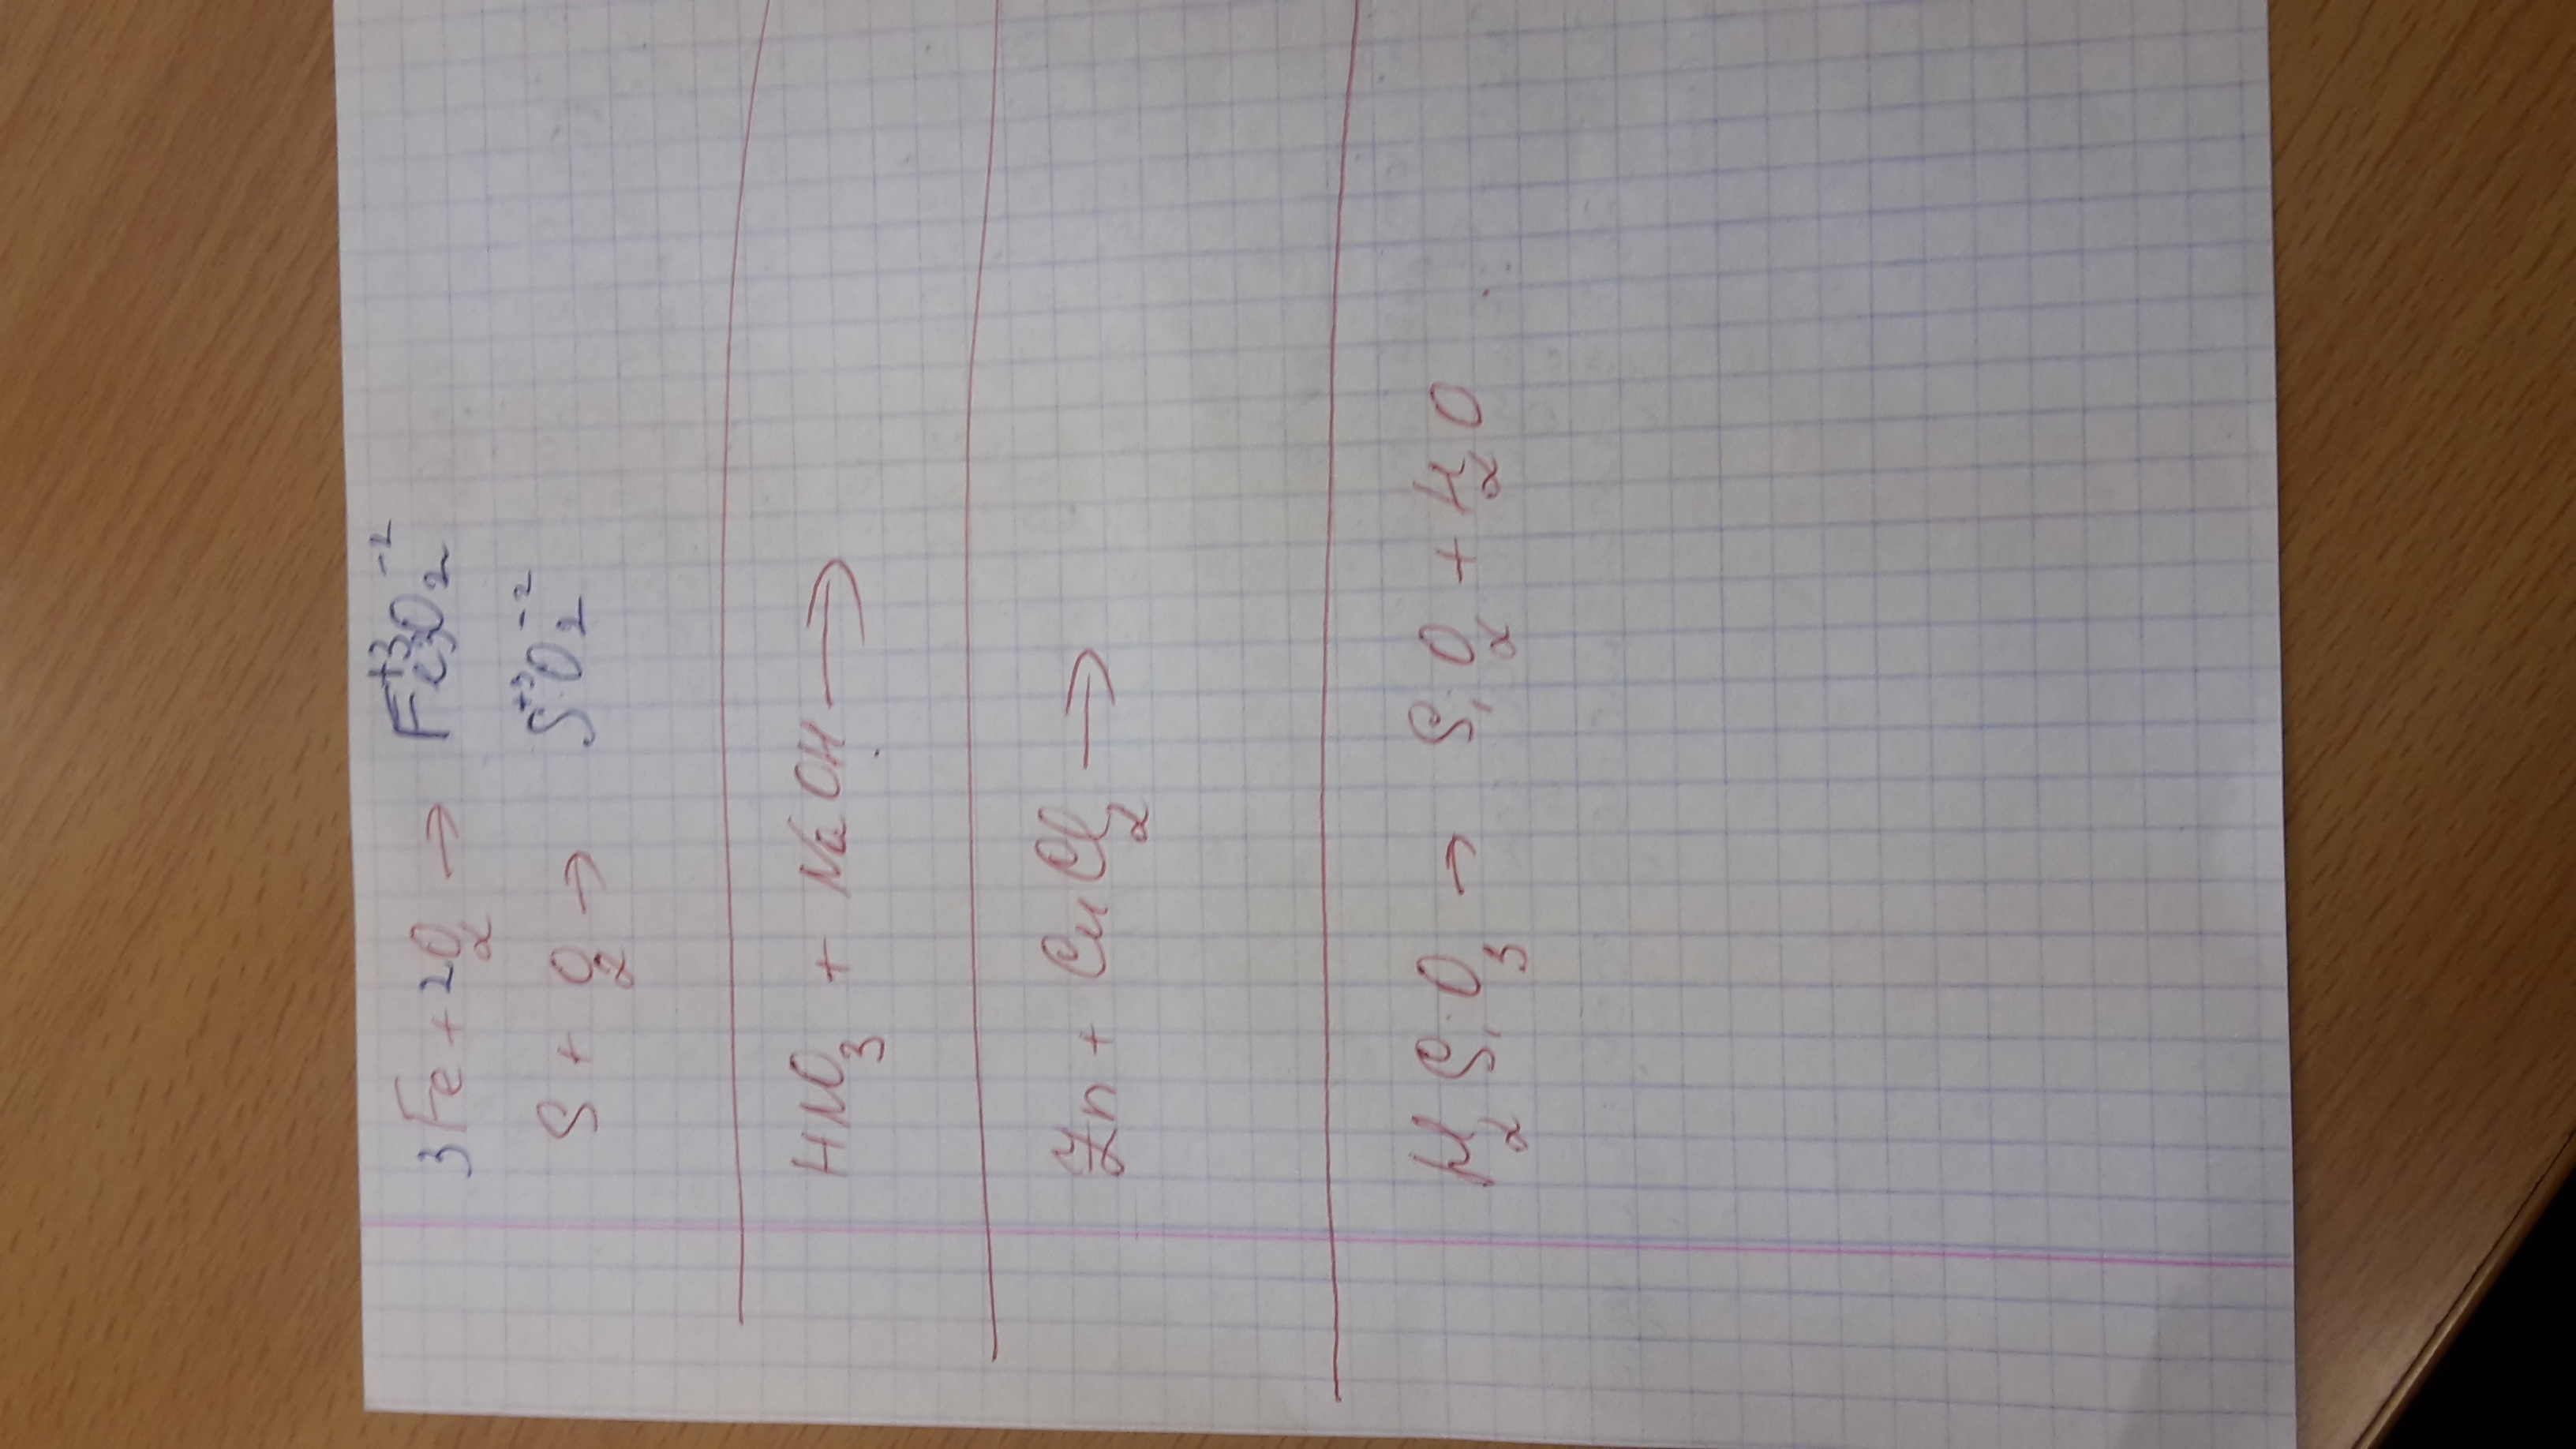 3Fe + 2O₂ → Fe₃⁺³O₂⁻²
S + O₂ → S⁺³O₂⁻²
HNO₃ + NaOH →
Zn + CuCl₂ →
H₂SiO₃ → SiO₂ + H₂O